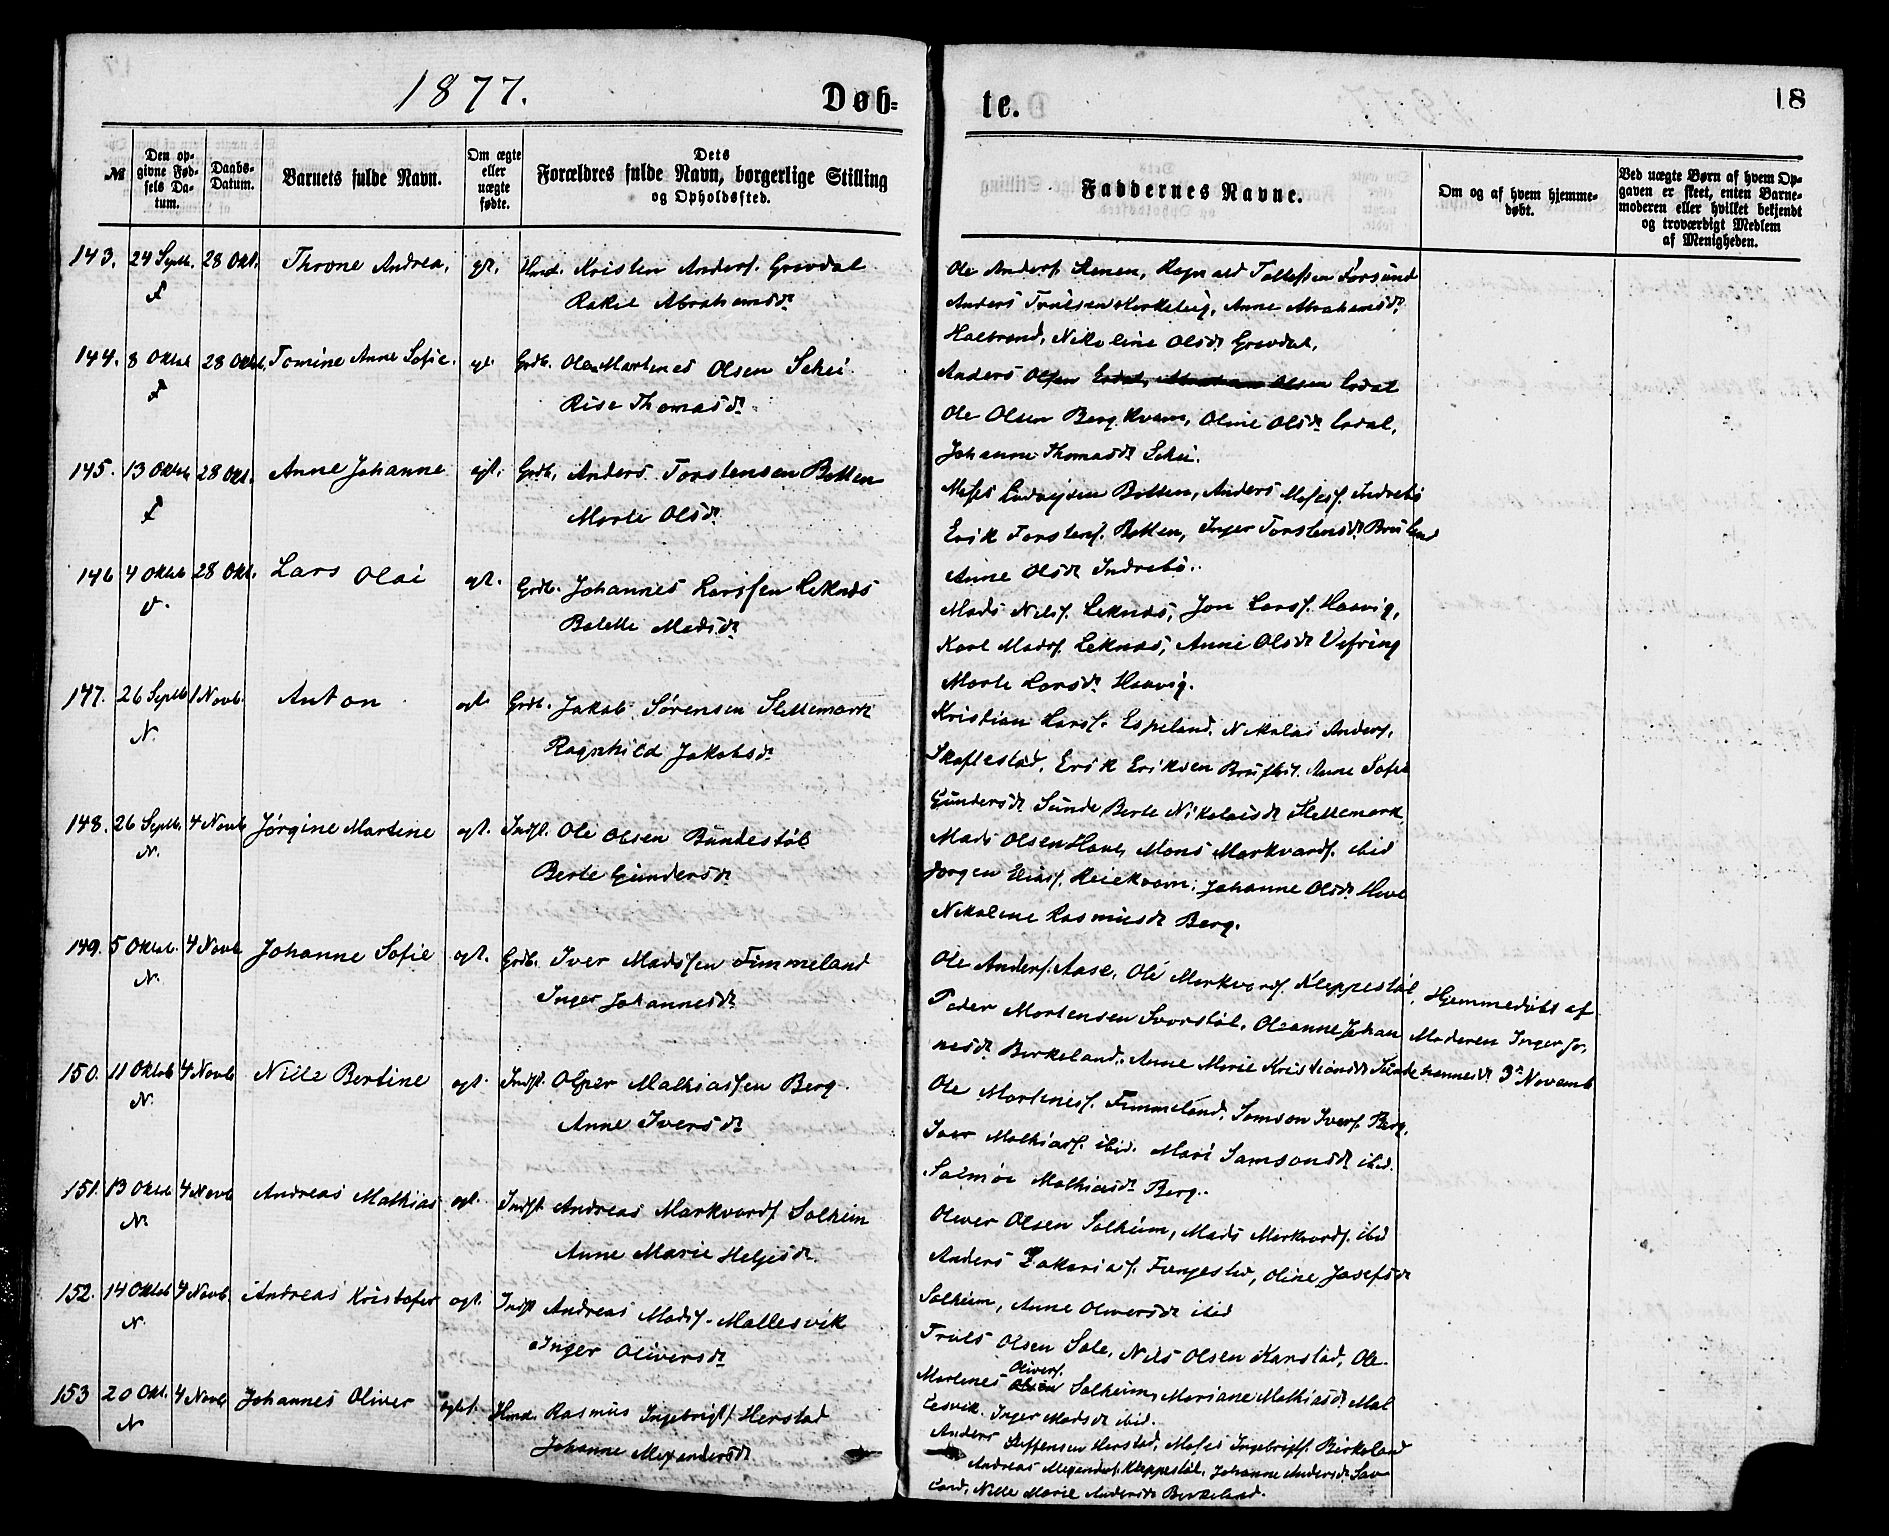 1877.
Døb-
te.
18
№
Den opgivne Fødsels Datum.
Daabs-Datum.
Barnets fulde Navn.
Om ægte eller uægte fødte.
Dets Forældres fulde Navn, borgerlige Stilling og Opholdssted.
Faddernes Navne.
Om og af hvem hjemmedøbt.
Ved uægte Børn af hvem Opgaven er skeet, enten Barnemoderen eller hvilket bekjendt og troværdigt Medlem af Menigheden.
143. 24 Septb. 28 Okt. Throne Andrea, egt. Hmd. Kristen Anders. Grovdal
Rakel Abrahamsdr
Ole Anders. Stenen, Ragnald Tollefsen Førsund
Anders Trulsen Kirketeig, Anne Abrahamsdr
Halbrend, Nikoline Olsdr Grovdal.
144. 8 Oktob 28 Oktob. Tomine Anne Sofie. egt Grdb. Ole Martines Olsen Schei
Rise Thomasdr
Anders Olsen Erdal
Ole Olsen Bergkvam, Oline Olsdr Erdal,
Johanne Thomasdr Schei.
145. 13 Oktob 28 Okt. Anne Johanne egt. Grdb. Anders Torstensen Botten
Marte Olsdr
Moses Ludvigsen Botten, Anders Moses. Indrebø
Erik Torstens. Botten, Inger Torstensdr Bruland
Anne Olsdr Indrebø.
146 4 Oktob 28 Okt. Lars Olai egt. Grdb. Johannes Larssen Leknæs
Bolette Madsdr
Mads Nils. Leknæs, Jon Lars. Haavig,
Karl Mads. Leknæs, Anne Olsdr Vefring
Marte Larsdr Haavig.
147. 26 Septb 1 Novb. Anton egt. Grdb. Jakob Sørensen Slettemark
N. Ragnhild Jakobsdr
Kristian Lars. Espeland, Nikolai Anders.
Skaflestad, Erik Eriksen Anne Sofie
Gundersdr Sunde Berte Nikolaisdr Slettemark
148. 26 Septb. 4 Novb Jørgine Martine egt. Indst. Ole Olsen Bundestøl
N. Berte Gundersdr
Mads Olsen Hove, Mons Markvards. ibid
Jørgen Elias. Reiekvam, Johanne Olsdr Hove
Nikoline Rasmusdr Berg.
149. 5 Oktob. 4 Novb Johanne Sofie egt. Grdb. Iver Madssen Fimmeland
N. Inger Johannesdr
Ole Anders. Aase, Ole Markvards. Kleppestøl,
Peder Mortensen Svorstøl, Oleanne Johan
nesdr Birkeland, Anne Marie Kristiansdr Sunde
Hjemmedøbt af
Moderen Inger Jo,
hannesdr 3. Novemb
150. 11 Oktob 4 Novb Nille Bertine egt. Indst. Mathiassen Berg
N. Anne Iversdr
Ole Martines. Fimmeland, Samson Ivers. Berg,
Iver Mathias. ibid. Mari Samsonsdr ibid.
Salmøe Mathiasdr Berg.
151. 13 Oktob 4 Novb Andreas Mathias egt. Indst. Andreas Markvards. Solheim
N. Anne Marie Helgesdr
Oliver Olsen Solheim, Mads Markvards. ibid
Anders Zakarias. Fungestad, Oline Josefsdr
Solheim, Anne Oliversdr ibid
152. 14 Oktob 4 Novb. Andreas Kristofer egt. Indst Andreas Mads. Mallesvik
N. Inger Oliversdr
Truls Olsen Sale, Nils Olsen Karstad, Ole
Martines Olivers. Solheim, Mariane Mathiasdr Mal
lesvik. Inger Madsdr ibid.
153 20 Okt. 4 Novb Johannes Oliver egte. Hmd. Rasmus Ingebrigts. Herstad
N Johanne Alexandersdr
Anders Steffensen Herstad, Moses Ingebrigts. Birkeland
Andreas Alexanders. Kleppestøl, Johanne Andersdr Sav
land, Nille Marie Andersdr Birkeland.